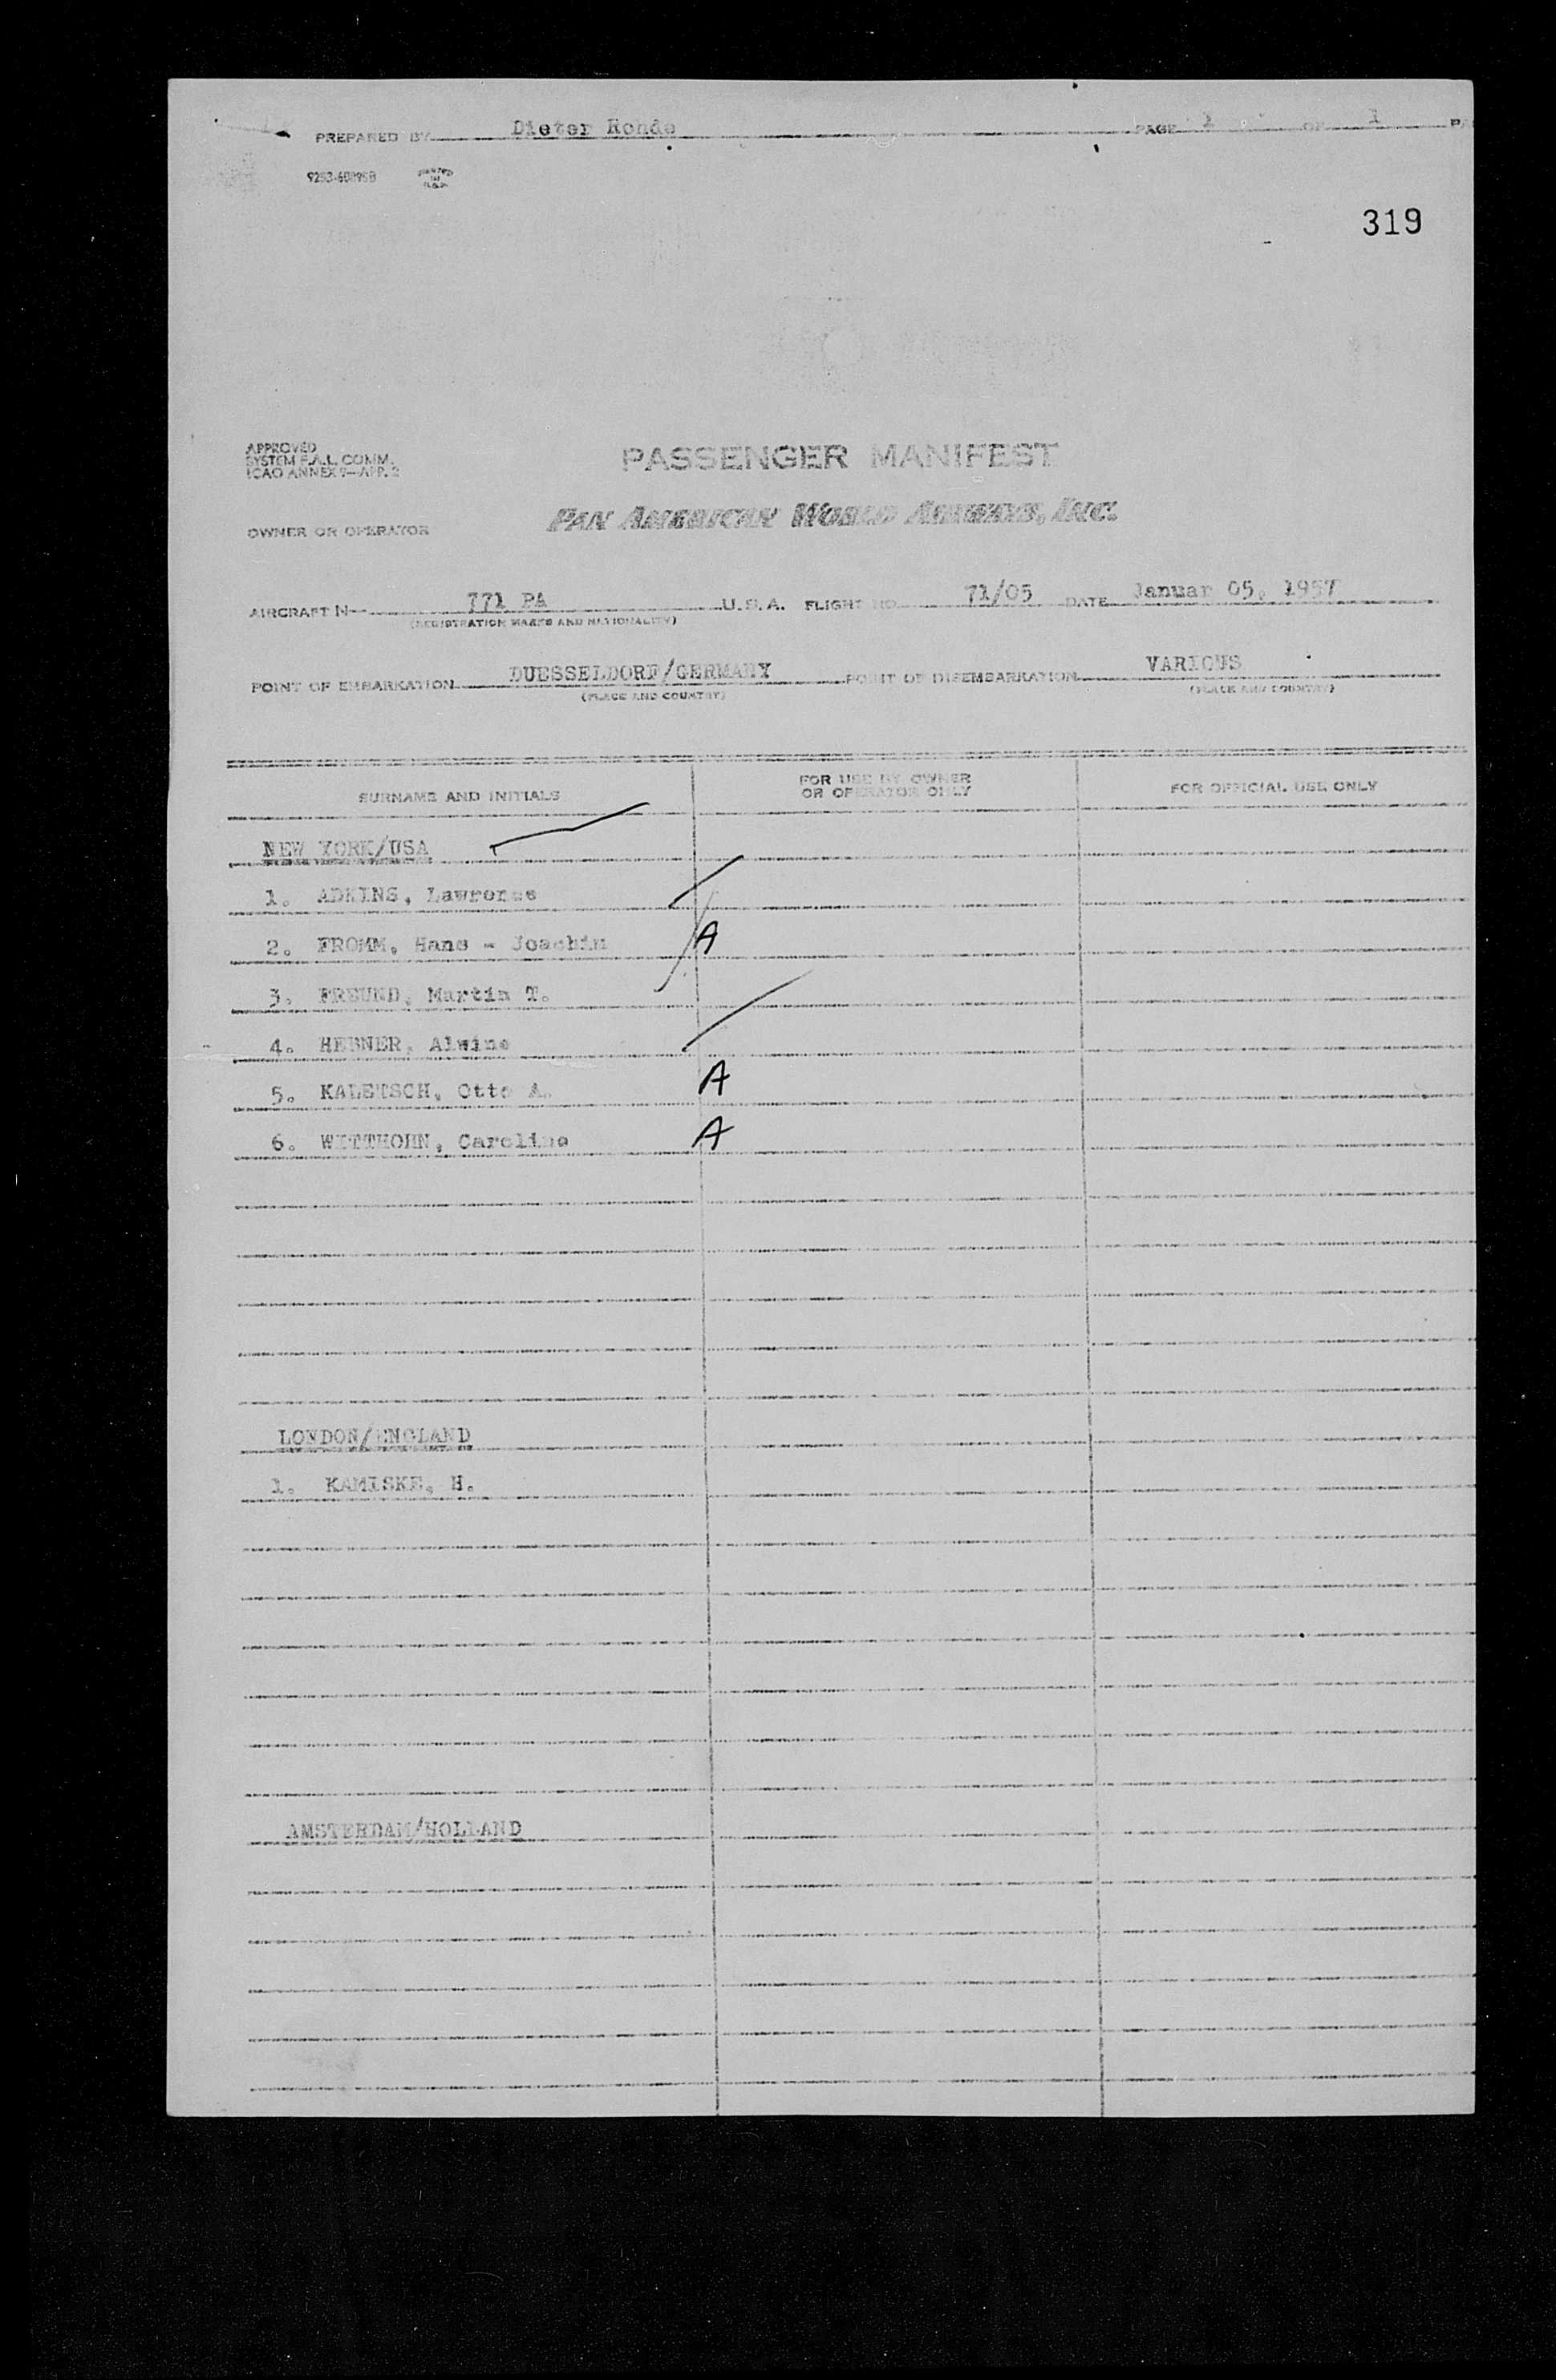 PREPARED BY Dieter Ronde PAGE 1 OF 1 PA
PRINTED IN U.S.A.
319
APPROVED
SYSTEM F.A.L. COMM.
ICAO ANNEX 9—APP. 2
PASSENGER MANIFEST
PAN AMERICAN WORLD AIRWAYS, INC.
OWNER OR OPERATOR
AIRCRAFT N— 771 PA U.S.A. FLIGHT NO. 71/05 DATE Januar 05, 1957
(REGISTRATION MARKS AND NATIONALITY)
POINT OF EMBARKATION DUESSELDORF/GERMANY POINT OF DISEMBARKATION VARIOUS
(PLACE AND COUNTRY) (PLACE AND COUNTRY)
SURNAME AND INITIALS FOR USE BY OWNER OR OPERATOR ONLY FOR OFFICIAL USE ONLY
NEW YORK/USA
1. ADKINS, Lawrence
2. FROMM, Hans - Joachim A
3. FREUND, Martin T.
4. HEBNER, Alwine
5. KALETSCH, Otto A. A
6. WITTHOHN, Caroline A
LONDON/ENGLAND
1. KAMISKE, H.
AMSTERDAM/HOLLAND